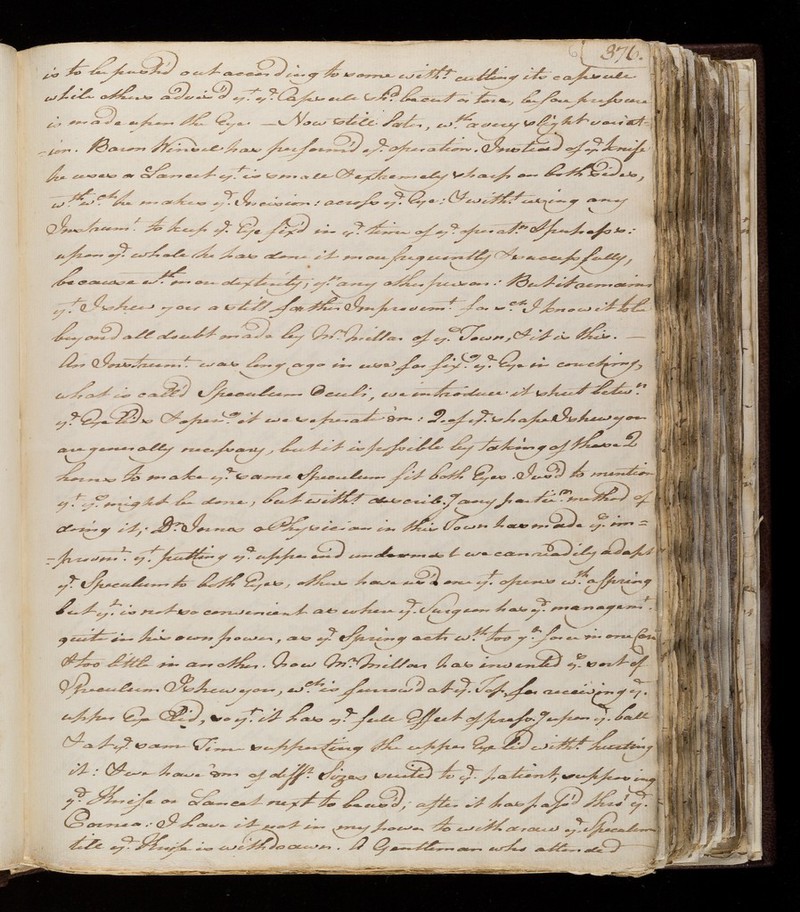 376.
is to be push'd out according to some with.t cutting its capsule
while others advis'd y.t y.e Capsule sh.d be cut or tore, before pressure
is made upon the Eye — Now still later, w.th a very slight variat=
=ion. Baron Winzel has perform'd y.e operation. Instead of y.e knife
he uses a Lancet y.t is small & extremely sharp on both sides,
w.th w.ch he makes y.e Incision: across y.e Eye: & with.t using any
Instrum.t to keep y.e Eye fix'd in y.e time of y.e operat.n & perhaps:
upon y.e whole he has done it more frequently & successfully,
because w.th more dexterity, y.n any other person: But it remains
y.t I shew you a still farther Improvem.t for s.ch I know it to be
beyond all doubt made by M.r Miller of y.s Town, & it is this. —
An Instrum.t was long ago in use for fix.g y.e Eye in couching,
what is call'd Speculum Oculi, we introduce it shut betw.n
y.e Eye lids & open.g it we separate 'em: 2 of y.s shape I shew you
are generally necessary, but it is possible by taking of these 2
horns to make y.e same Speculum fit both Eyes. I us'd to mention
y.t y.s might be done, but with.t describ.g any partic.r method of
doing it; D.r Innes a Physician in this Town has made y.s im=
=provem.t y.t putting y.e upper end undermost we can readily adapt
y.e Speculum to both Eyes, others have us'd one y.t opens w.th a Spring
but y.t is not so convenient as when y.e Surgeon has y.e managem.t
quite in his own power, as y.e Spring acts w.th too g.t force in one Case
& too little in another. Now M.r Miller has invented y.s sort of
Speculum I shew you, w.ch is furrow'd at y.e Top, for receiving y.e
upper Eye Lid, so y.t it has y.e full Effect of press.g upon y.e ball
& at y.e same Time supporting the upper Eye lid with.t hurting
it: & we have 'em of diff.t Sizes suited to y.e patient, supposing
y.e Knife or Lancet next to be us'd; after it has pass'd thro' y.e
Cornea: I have it not in my power to withdraw y.e Speculum
till y.e Knife is withdrawn. A Gentleman who attended